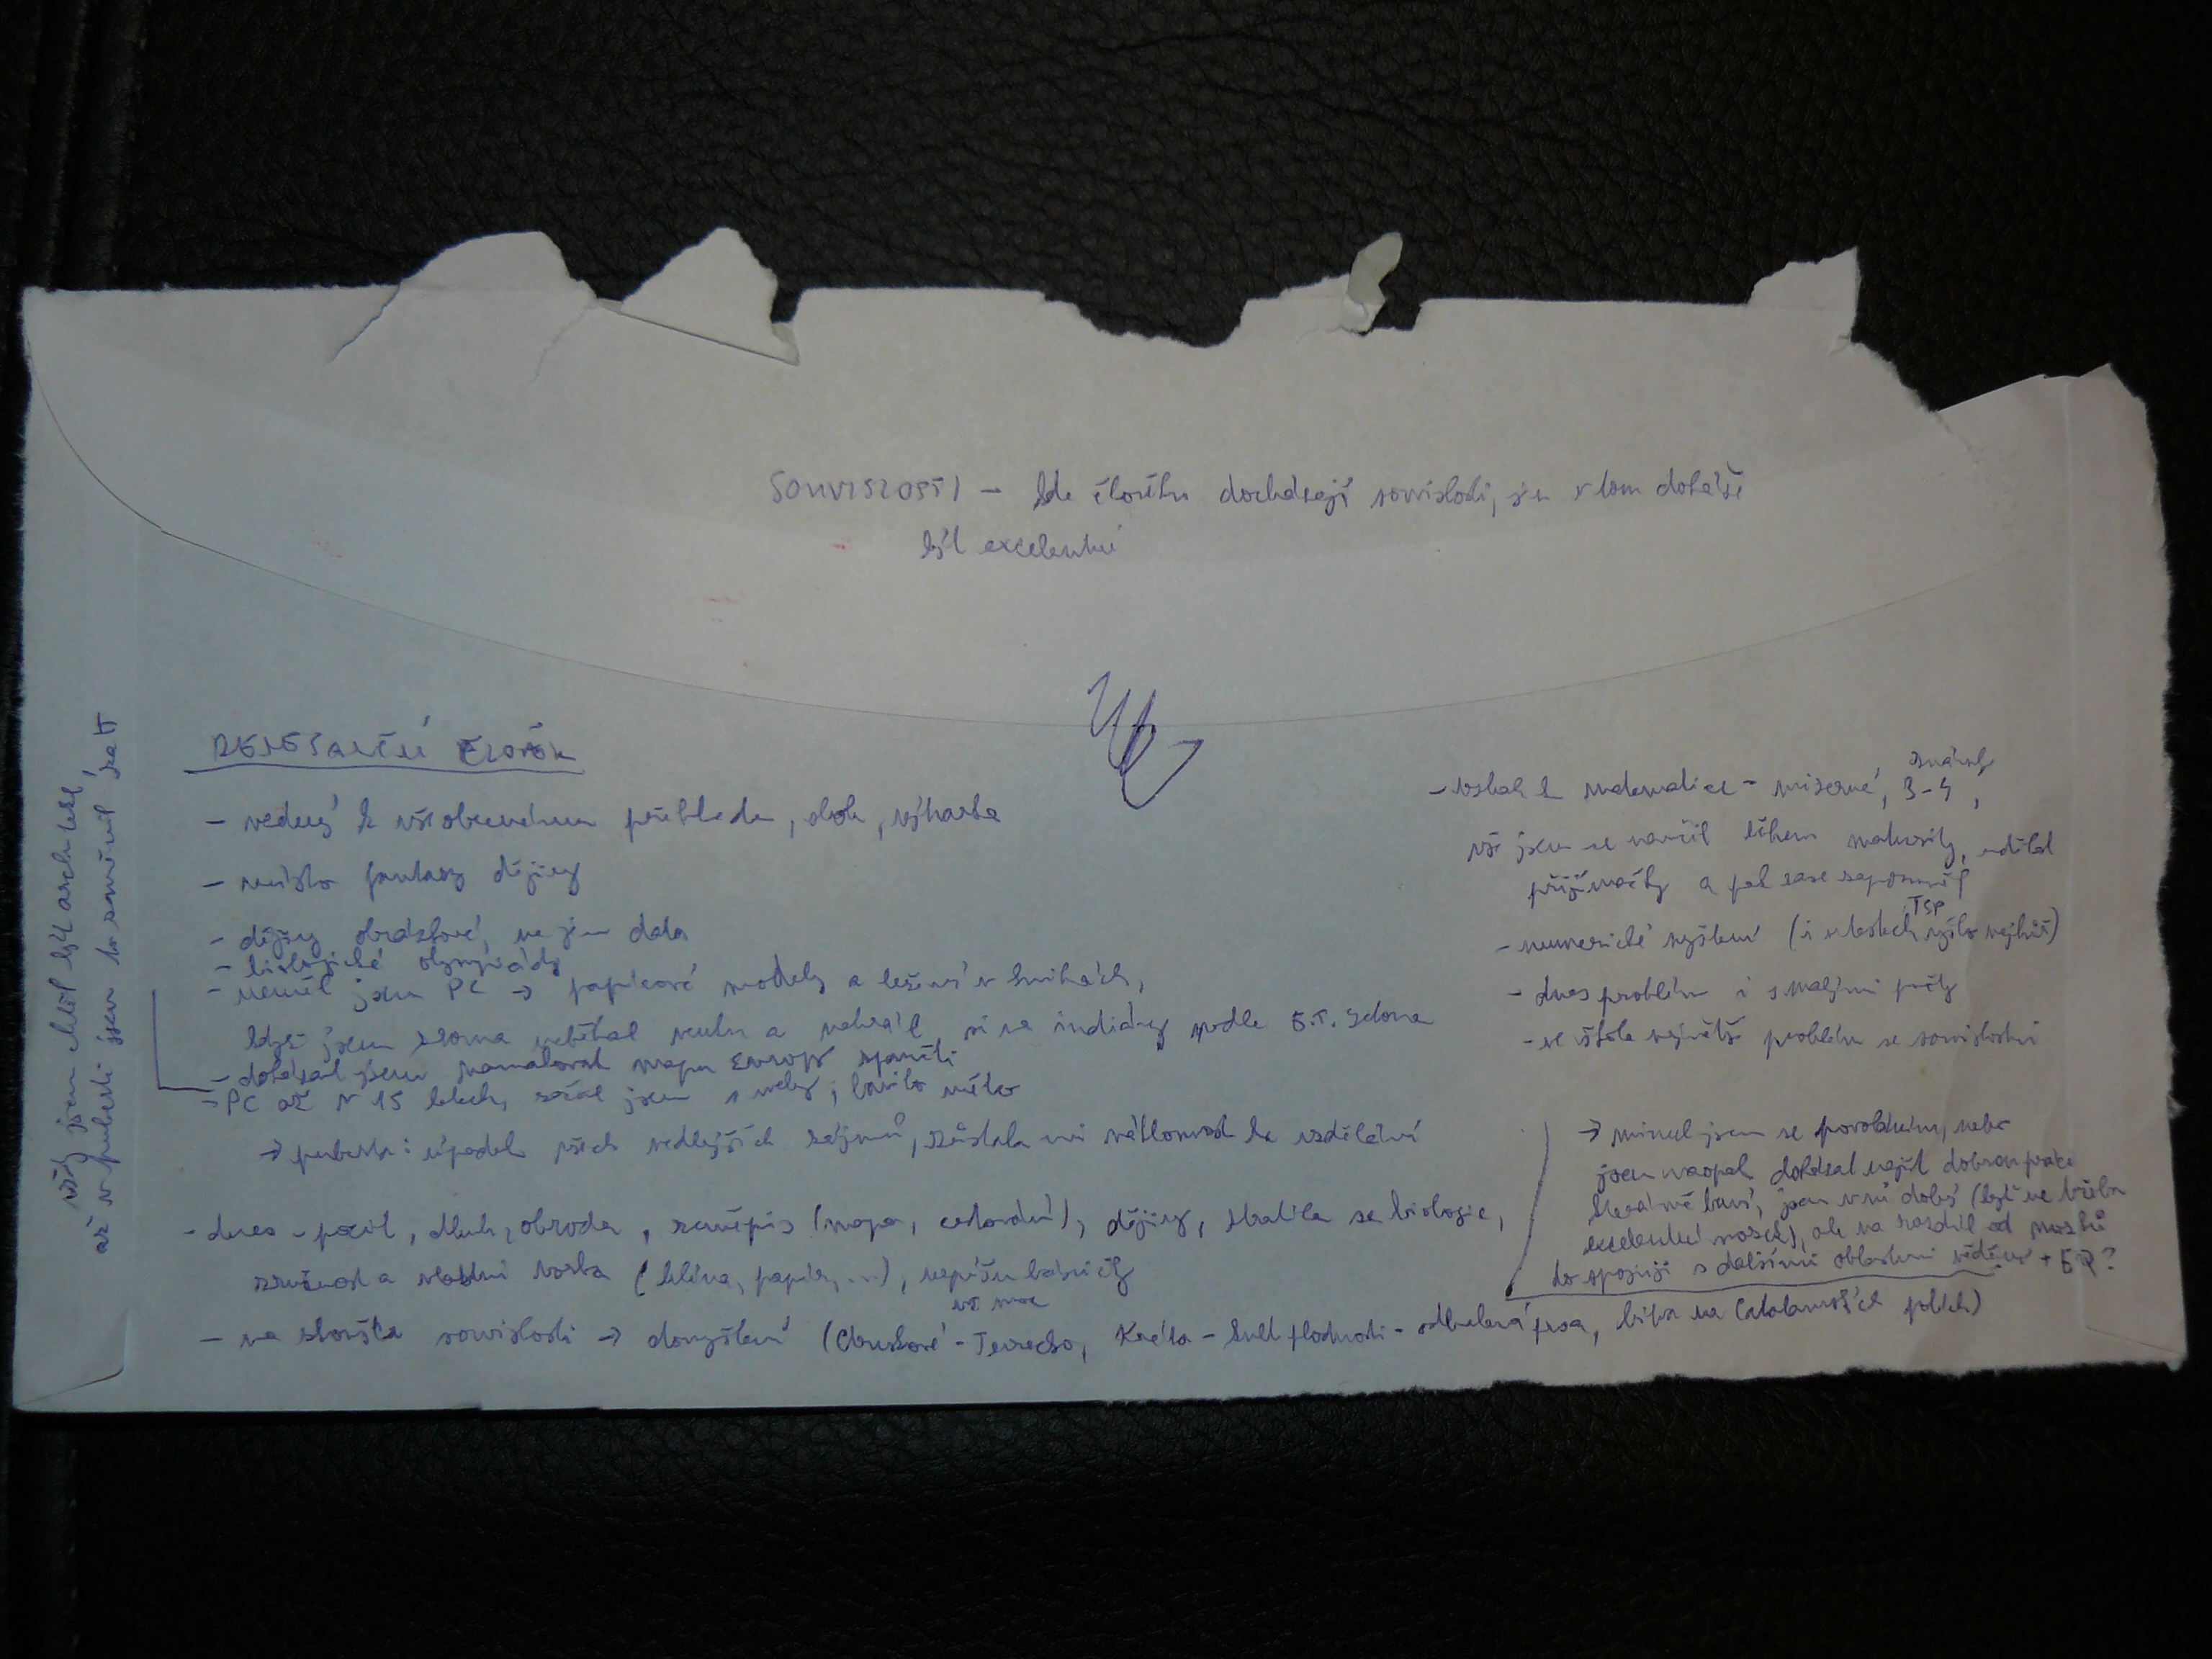 SOUVISLOSTI – kde člověku docházejí souvislosti, jen v tom dokáže
být excelentní
RENESANČNÍ ČLOVĚK
– vedený k všeobecnému přehledu, doba, výchova
– místo fantasy dějiny
– dějiny obrázkové, ne jen data
– biologické olympiády
– neměl jsem PC → papírové modely a ležení v knihách,
když jsem zrovna neběhal venku a nehrál si na indiány podle E.T. Setona
– dokázal jsem namalovat mapu Evropy zpaměti
– PC až v 15 letech, začal jsem s weby, bavilo mě to
→ puberta: úpadek všech vedlejších zájmů, zůstala mi náklonnost ke vzdělání
– dnes – pocit, dluh, obroda, zeměpis (mapa, cestování), dějiny, ztratila se biologie,
zručnost a vlastní tvorba (hlína, papír, ...), nepíšu básničky
už moc
– na stovšta souvislosti → domyšlení (Etruskové – Turecko, Kréta – kult plodnosti – odhalená prsa, bitva na Katalaunských polích)
vždy jsem chtěl být architekt,
až v pubertě jsem to zaměnil za IT
– vztah k matematice – mizerné, známky 3–4,
vše jsem se naučil během maturity, udělal
přijímačky a pak zase zapomněl
– numerické myšlení (i v testech TSP vyšlo nejhůř)
– dnes problém i s malými počty
– ve škole největší problém se souvislostmi
→ minul jsem se povoláním, nebo
jsem naopak dokázal najít dobrou práci
která mě baví, jsem v ní dobrý (byť ne třeba
excelentní mozek), ale na rozdíl od mozků
to spojuji s dalšími oblastmi vědění + EQ?